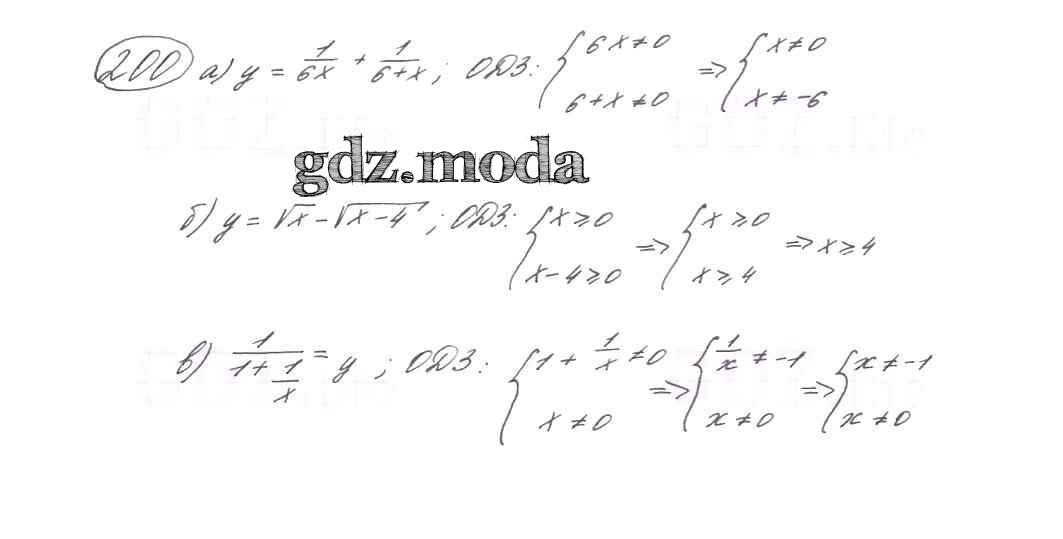 200 а) y = 1/6x + 1/6+x ; ОДЗ: { 6x ≠ 0 6+x ≠ 0 => { x ≠ 0 x ≠ -6
gdz.moda
б) y = √x - √x-4 ; ОДЗ: { x ⩾ 0 x-4 ⩾ 0 => { x ⩾ 0 x ⩾ 4 => x ⩾ 4
в) 1/(1+1/x) = y ; ОДЗ: { 1 + 1/x ≠ 0 x ≠ 0 => { 1/x ≠ -1 x ≠ 0 => { x ≠ -1 x ≠ 0